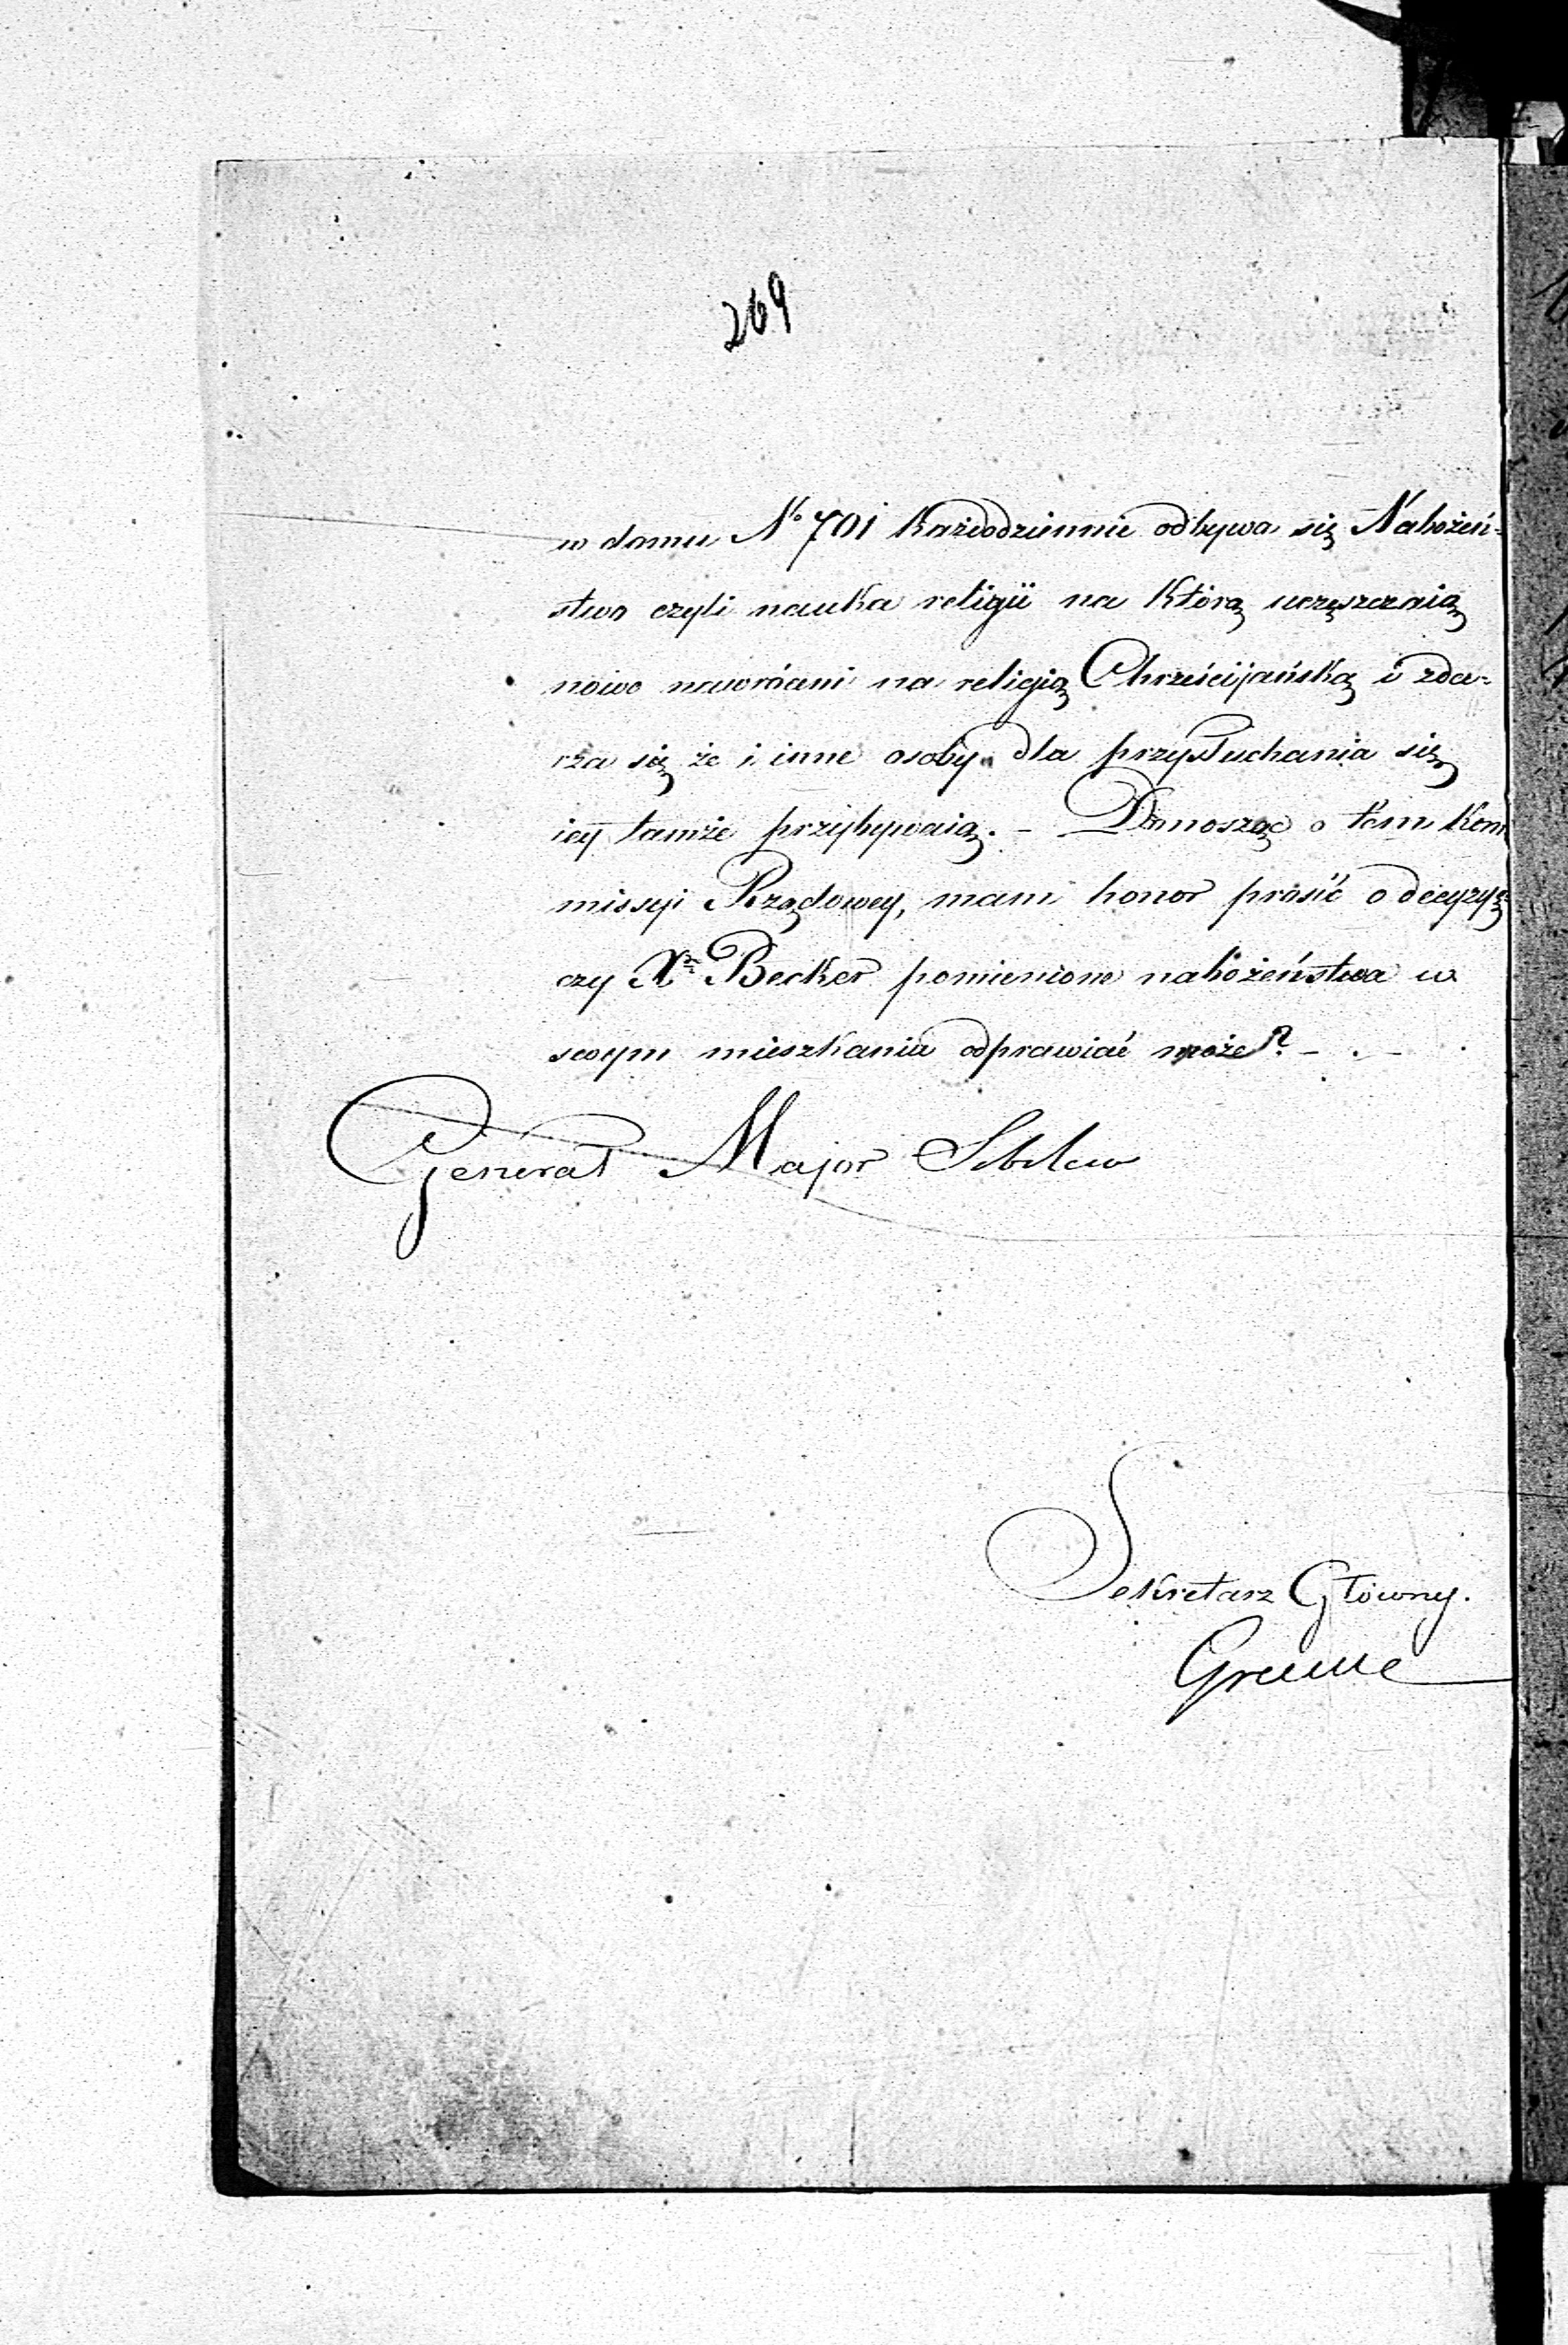 269
w domu No 701 Każdodziennie odbywa się Nabożeń-
stwo czyli nauka religii na którą uczęszczaią
nowo nawróceni na religią Chrześcijańską i zda-
rza się że i inne osoby dla przysłuchania się
iéy tamże przybywaią. - Donosząc o tem Kom
missyi Rządowey, mam honor prosić o decyzyą
czy Xdz Becker pomienione nabożeństwa w
swoym mieszkaniu odprawiać może? -
Generał Major
Sekretarz Główny.